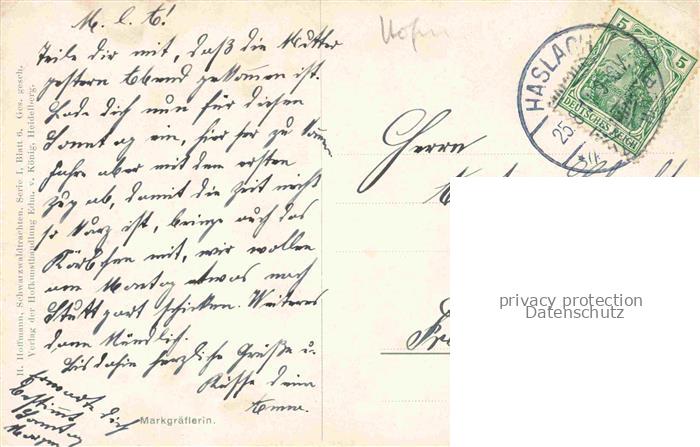 M. l. E!
Teile dir mit, daß die Mutter
gestern Abend gekommen ist.
Lade dich nun für diesen
Sonntag ein, hierher zu kommen
Fahre aber mit dem ersten
Zug ab, damit die Zeit nicht
so kurz ist, bringe auch das
Körbchen mit, wir wollen
am Montag etwas nach
Stuttgart schicken. Weiteres
dann Mündlich.
Bis dahin herzliche Grüße u.
Küsse deine
Emma.
Erwarte dich
Bestimmt
Sonntag
Morgen
Markgräflerin.
H. Hoffmann, Schwarzwaldtrachten, Serie I, Blatt 6. Ges. gesch.
Verlag der Hofkunsthandlung Edm. v. König, Heidelberg.
HASLACH
25
5 5
DEUTSCHES REICH
Herrn
Fre
privacy protection
Datenschutz